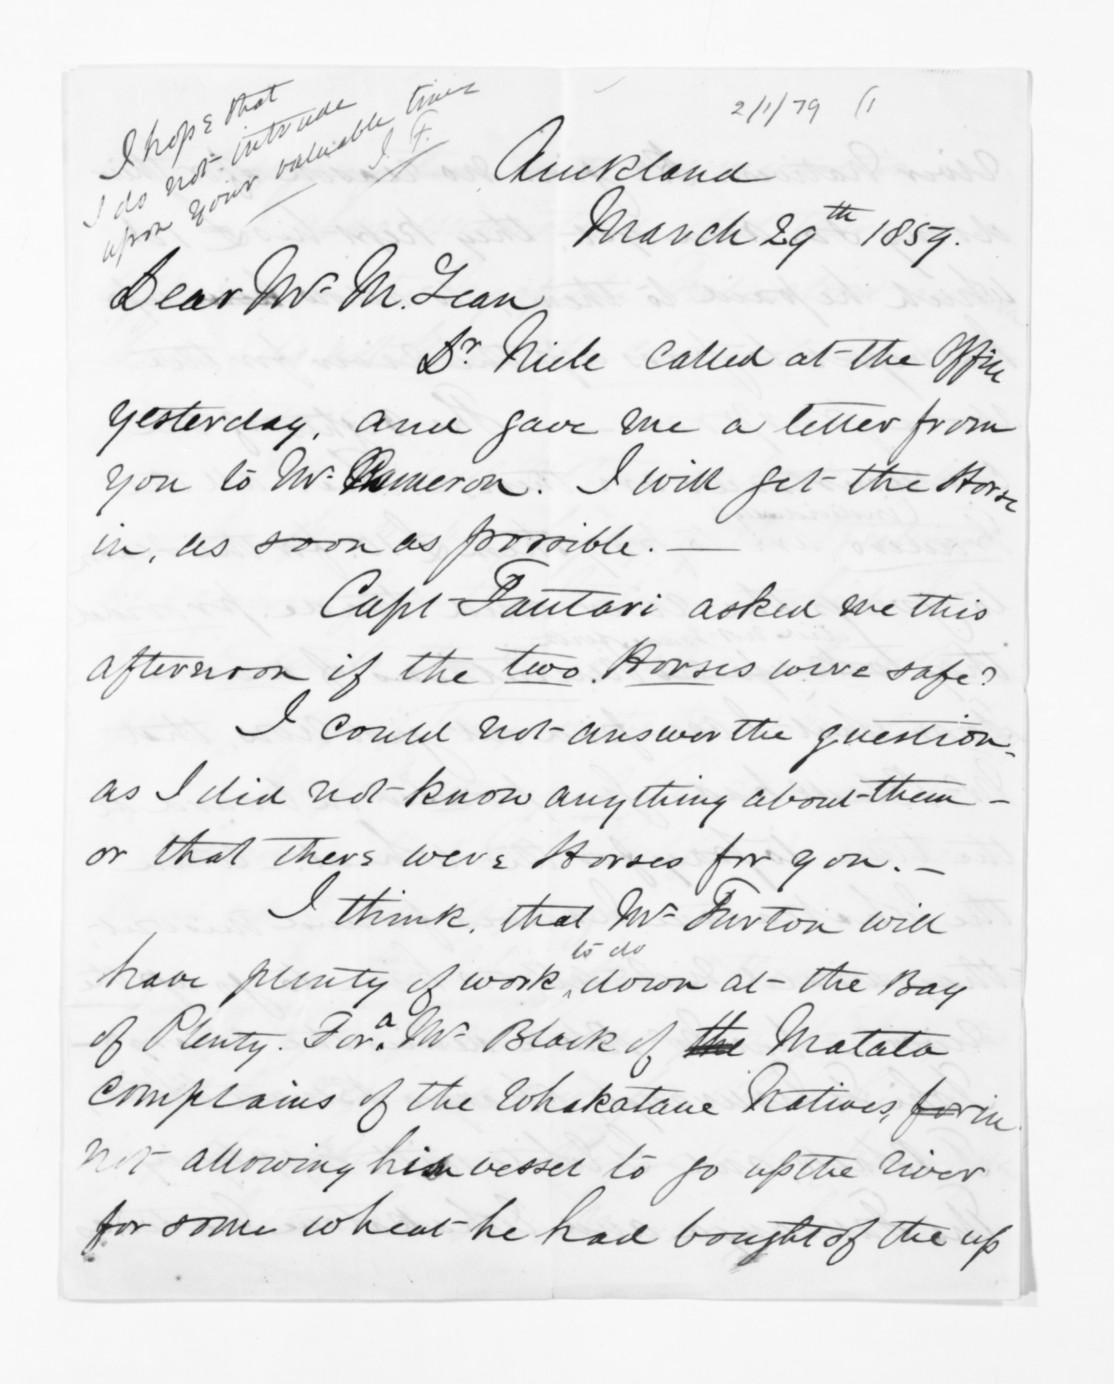 2/1/79 (1
I hope that
I do not intrude
upon your valuable time
J. F.
Auckland
March 29th 1859.
Dear Mr McLean
Dr Nicle called at the Office
yesterday, and gave me a letter from
you to Mr Cameron. I will get the Horse
in, as soon as possible. —
Capt Fautari asked me this
afternoon if the two Horses were safe?
I could not answer the question
as I did not know anything about them –
or that there were Horses for you. –
I think, that Mr Turton will
have plenty of work to do down at the Bay
of Plenty. For a Mr Black of the Matata
complains of the Whakatane Natives, for in
not allowing his vessel to go up the river
for some wheat he had bought of the up